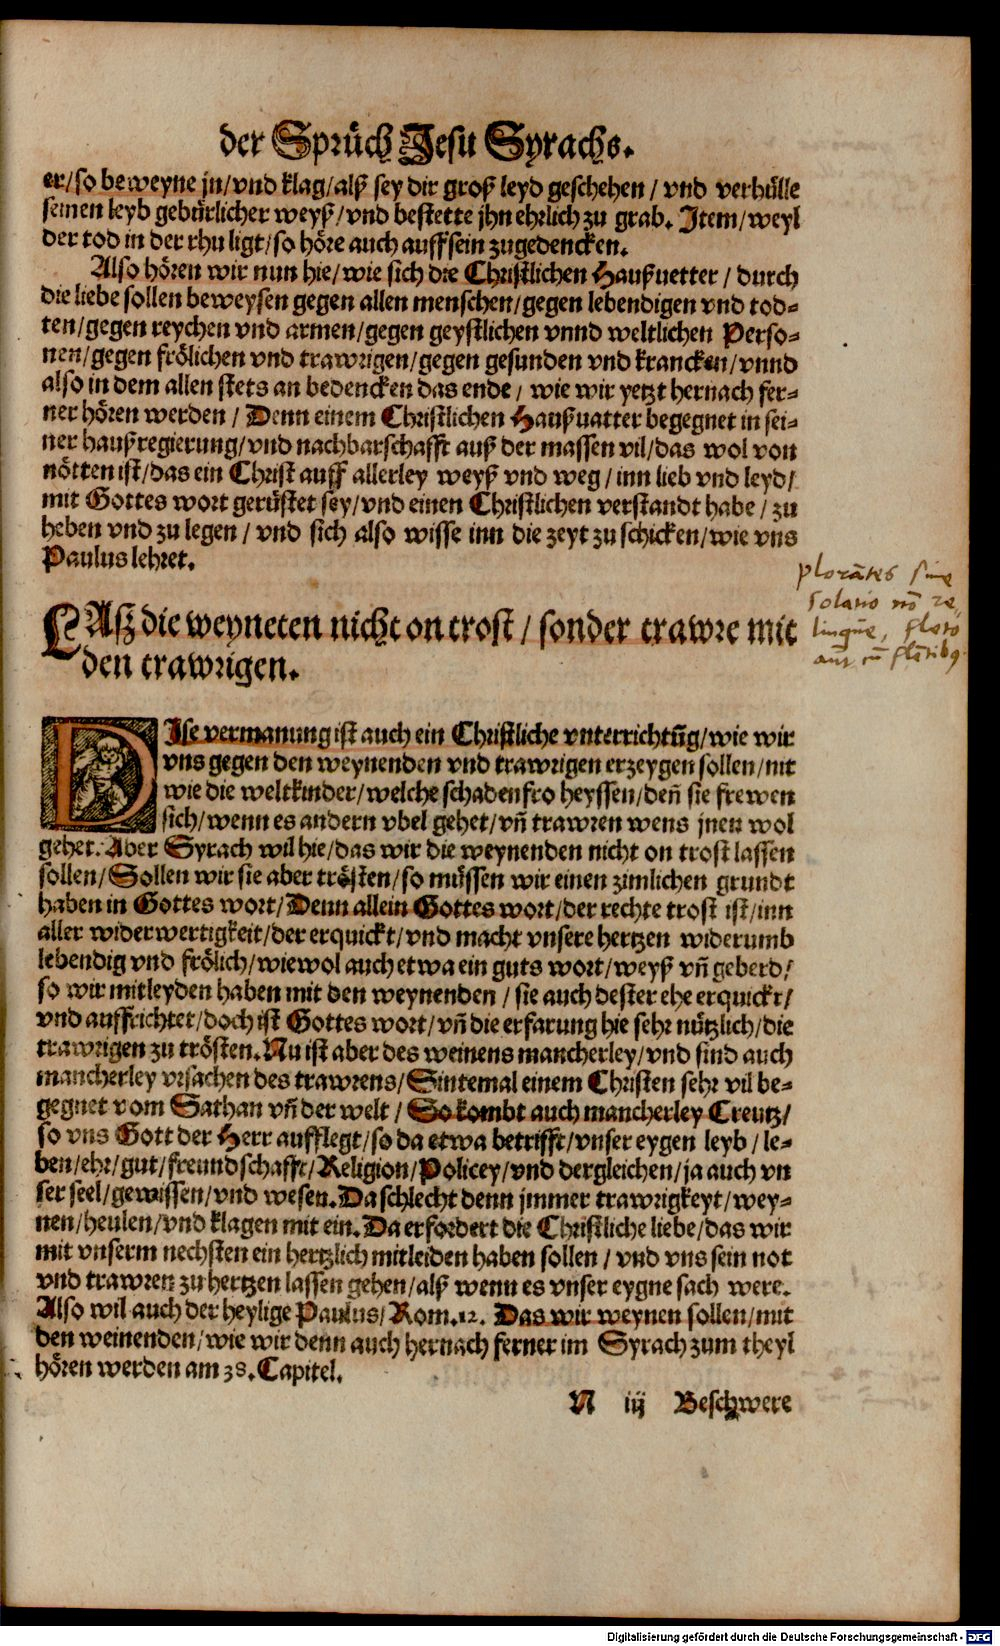 der Sprüch Jesu Syrachs.
er/so beweyne jn/vnd klag/alß sey dir groß leyd geschehen/vnd verhülle
seinen leyb gebürlicher weyß/vnd bestette jhn ehrlich zu grab. Item/weyl
der tod in der rhu ligt/so höre auch auff sein zugedencken.
Also hören wir nun hie/wie sich die Christlichen Haußuetter/durch
die liebe sollen beweysen gegen allen menschen/gegen lebendigen vnd tod-
ten/gegen reychen vnd armen/gegen geystlichen vnnd weltlichen Perso-
nen/gegen frölichen vnd trawrigen/gegen gesunden vnd krancken/vnnd
also in dem allen stets an bedencken das ende/wie wir yetzt hernach fer-
ner hören werden/Denn einem Christlichen Haußuatter begegnet in sei-
ner haußregierung/vnd nachbarschafft auß der massen vil/das wol von
nötten ist/das ein Christ auff allerley weyß vnd weg/inn lieb vnd leyd/
mit Gottes wort gerüstet sey/vnd einen Christlichen verstandt habe/zu
heben vnd zu legen/vnd sich also wisse inn die zeyt zu schicken/wie vns
Paulus lehret.
plorātes sine
solatio nō re-
linque, ploro
aūt cū flētibus
LAß die weyneten nicht on trost/sonder trawre mit
den trawrigen.
DIse vermanung ist auch ein Christliche vnterrichtūg/wie wir
vns gegen den weynenden vnd trawrigen erzeygen sollen/nit
wie die weltkinder/welche schadenfro heyssen/deñ sie frewen
sich/wenn es andern vbel gehet/vñ trawren wens jnen wol
gehet. Aber Syrach wil hie/das wir die weynenden nicht on trost lassen
sollen/Sollen wir sie aber trösten/so müssen wir einen zimlichen grundt
haben in Gottes wort/Denn allein Gottes wort/der rechte trost ist/inn
aller widerwertigkeit/der erquickt/vnd macht vnsere hertzen widerumb
lebendig vnd frölich/wiewol auch etwa ein guts wort/weyß vñ geberd/
so wir mitleyden haben mit den weynenden/sie auch dester ehe erquickt/
vnd auffrichtet/doch ist Gottes wort/vñ die erfarung hie sehr nützlich/die
trawrigen zu trösten. Nu ist aber des weinens mancherley/vnd sind auch
mancherley vrsachen des trawrens/Sintemal einem Christen sehr vil be-
gegnet vom Sathan vñ der welt/So kombt auch mancherley Creutz/
so vns Gott der Herr aufflegt/so da etwa betrifft/vnser eygen leyb/le-
ben/ehr/gut/freundschafft/Religion/Policey/vnd dergleichen/ja auch vn
ser seel/gewissen/vnd wesen. Da schlecht denn jmmer trawrigkeyt/wey-
nen/heulen/vnd klagen mit ein. Da erfordert die Christliche liebe/das wir
mit vnserm nechsten ein hertzlich mitleiden haben sollen/vnd vns sein not
vnd trawren zu hertzen lassen gehen/alß wenn es vnser eygne sach were.
Also wil auch der heylige Paulus/Rom.12. Das wir weynen sollen/mit
den weinenden/wie wir denn auch hernach ferner im Syrach zum theyl
hören werden am 38. Capitel.
N iij Beschwere
Digitalisierung gefördert durch die Deutsche Forschungsgemeinschaft - DFG